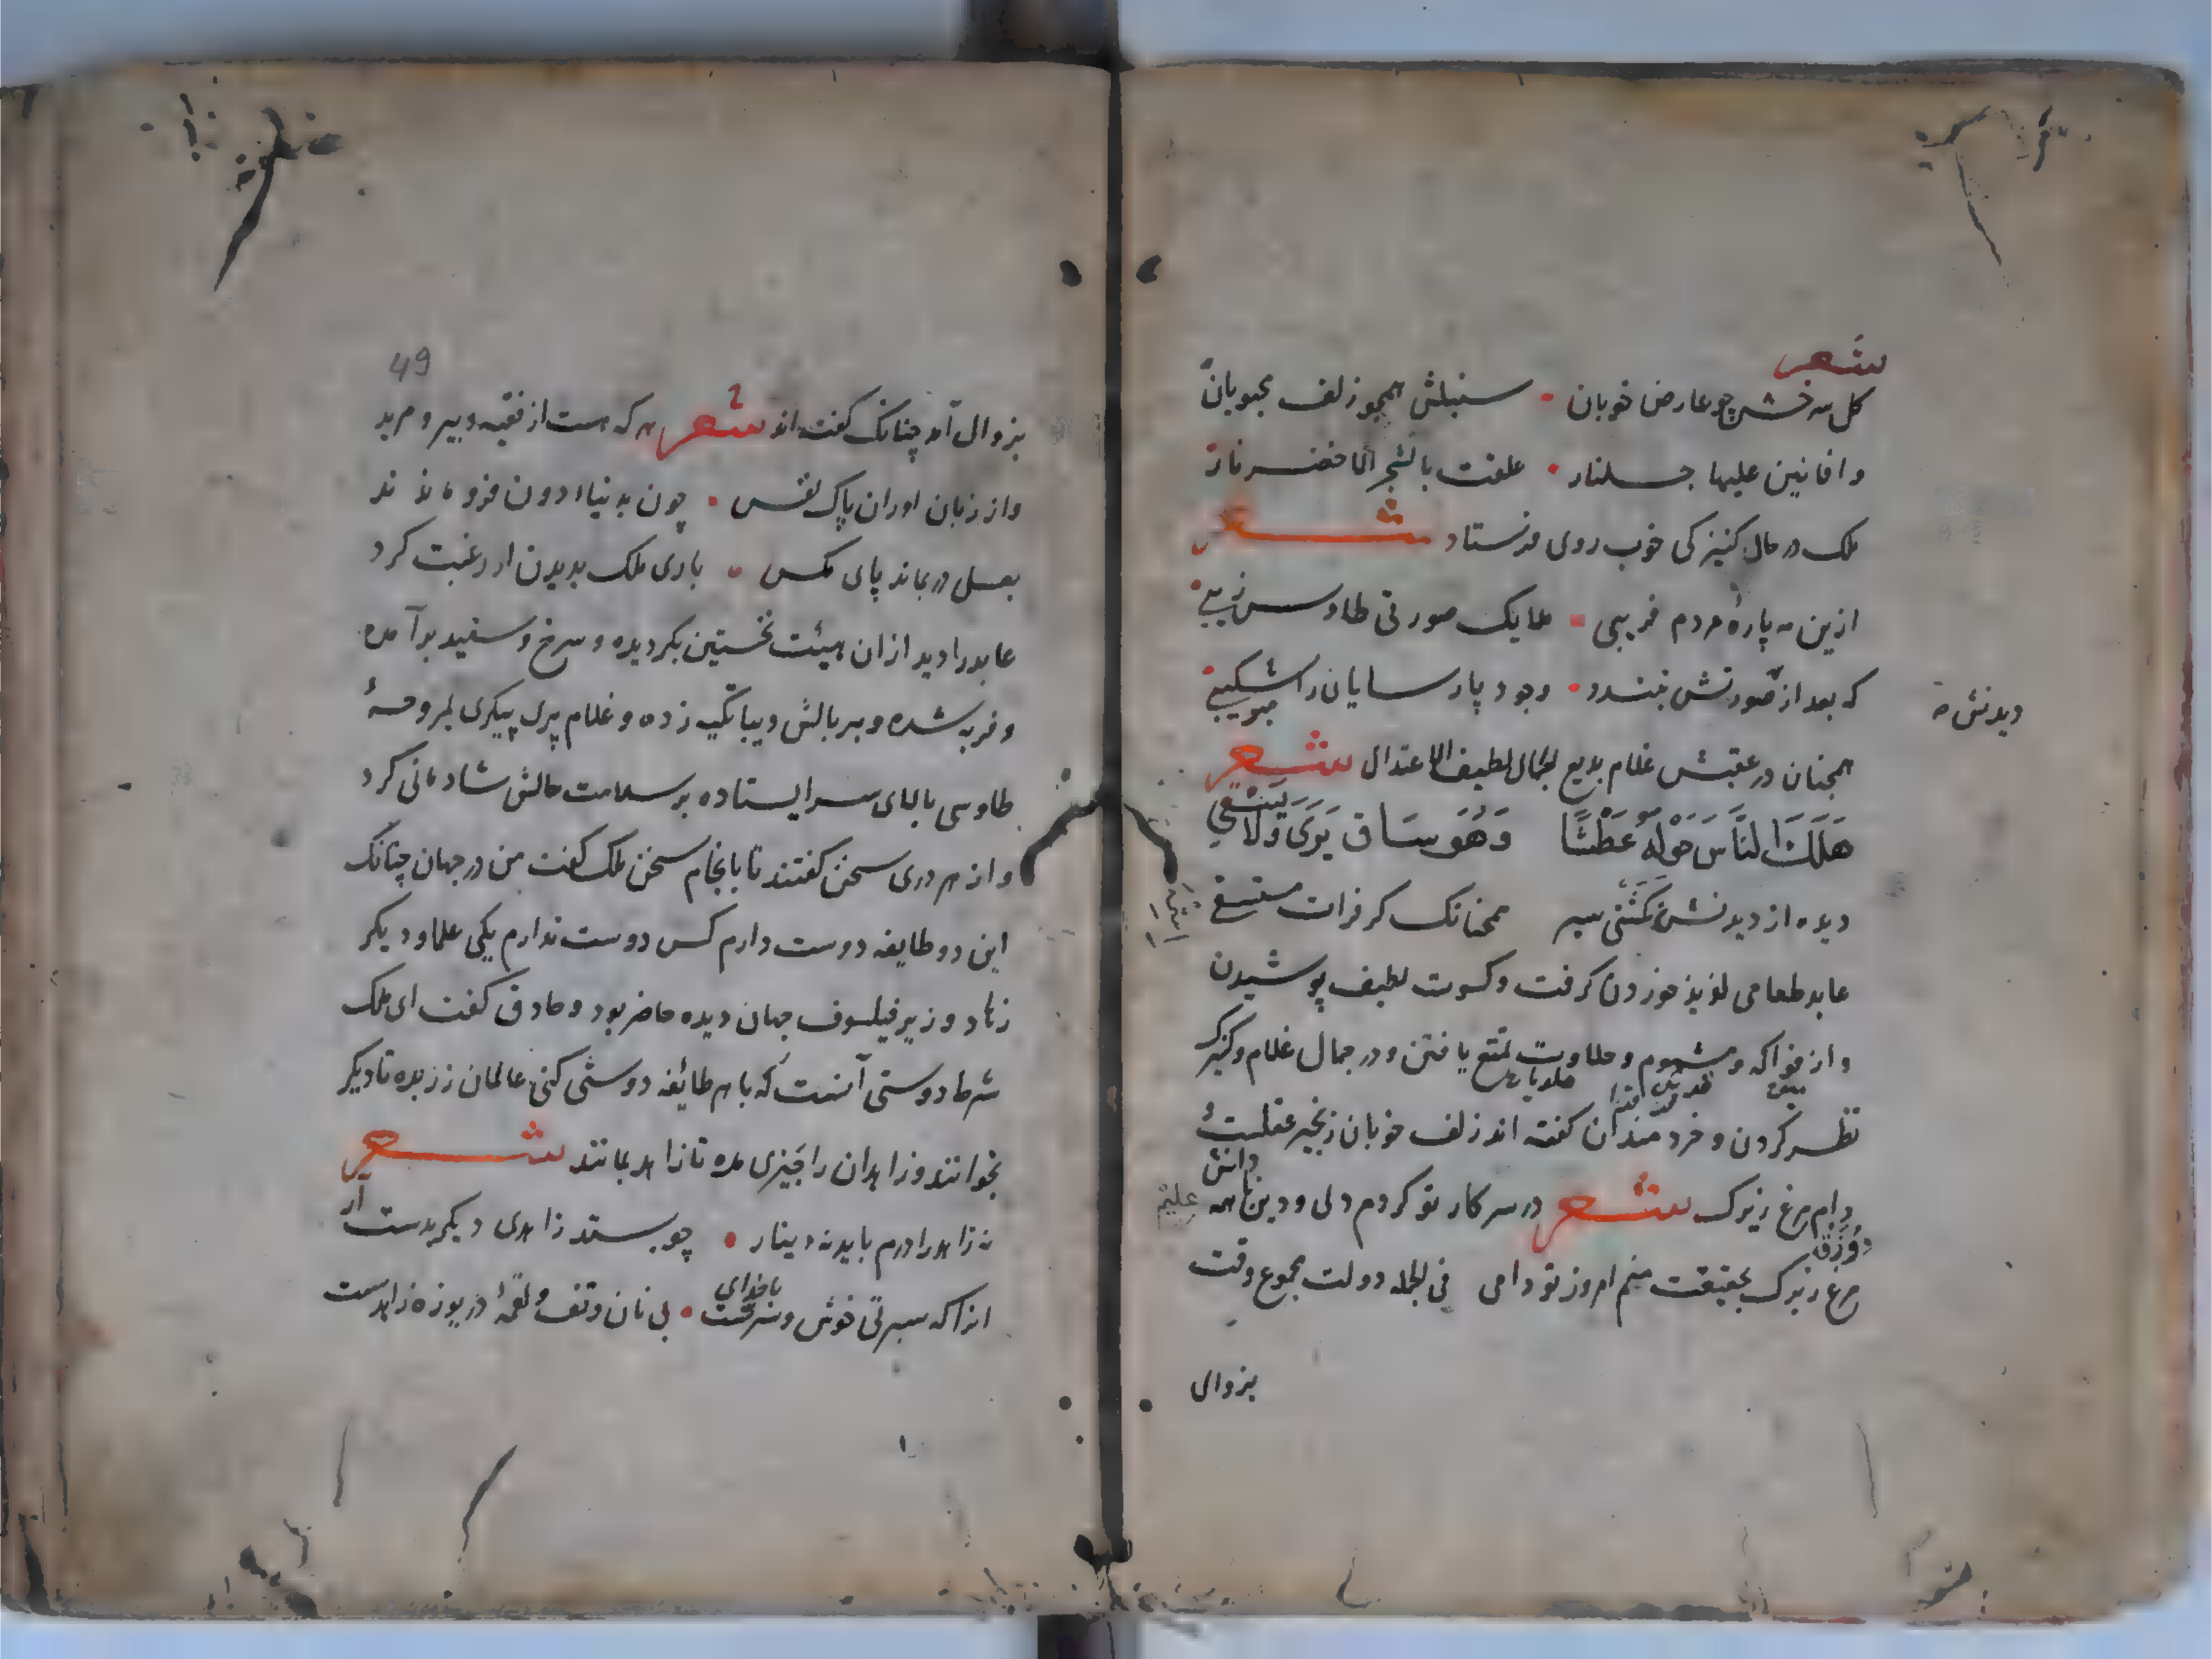 شعر
كل سرخش چو عارض خوبان • سنبلش همجو زلف محبوبان
و افانين عليها جلنار • علقت بالشجر الاخضر نار
ملك در حال كنيزكى خوب روى فرستاد شعر
ازين مه پارهٔ مردم فريبى • ملايك صورتى طاوس زيبى
كه بعد از صورتش نبندد • وجود پارسايان را شكيبى
ديدنش
همجنان در عقبش غلام بديع الجمال لطيف الاعتدال شعر
هَلَكَ النَّاسُ حَوْلَهُ عَطْشًا وَهُوَ سَاقٍ يَرَى وَلَا يَسْقِي
ديده از ديدنش نكشتى سير همجنانك كز فرات مستسقى
عابد طعامى لذيذ خوردن كرفت و كسوت لطيف پوشيدن
و از فواكه و مشموم و حلاوت تمتع يافتن و در جمال غلام و كنيزك
نظر كردن و خردمندان كفته اند زلف خوبان زنجير عقلست و
دام مرغ زيرك شعر در سر كار تو كردم دل و دين با همه
دانش
مرغ زيرك بحقيقت منم امروز تو دامى فى الجمله دولت مجموع وقت
بزوال
49
بزوال آمد چنانك كفته اند شعر هر كه هست از فقيه و پير و مريد
و از زبان اوران پاك نفس • چون بدنياء دون فرو ماند ند
بعسل در بماند پاى مكس • بارى ملك بديدن او رغبت كرد
عابد را ديد از ان هيئت نخستين بكرديده و سرخ و سفيد برآمده
و فربه شده و بر بالش ديبا تكيه زده و غلام پرى پيكرى بمروحهٔ
طاوسى بالاى سر ايستاده بر سلامت حالش شادمانى كرد
و از هر درى سخن كفتند تا بانجام سخن ملك كفت من در جهان چنانك
اين دو طايفه دوست دارم كس دوست ندارم يكى علما و ديكر
زهاد وزير فيلسوف جهان ديده حاضر بود و حاذق كفت اى ملك
شرط دوستى آنست كه با هر طائفه دوستى كنى عالمان زر بده تا ديكر
بخوانند و زاهدان را چيزى مده تا زاهد بمانند شعر
نه زاهد را درم بايد نه دينار • چو بستد زاهدى ديكر بدست آر
انرا كه سيرتى خوش و سريست با خداى • بى نان وقف و لقمهٔ دريوزه زاهدست